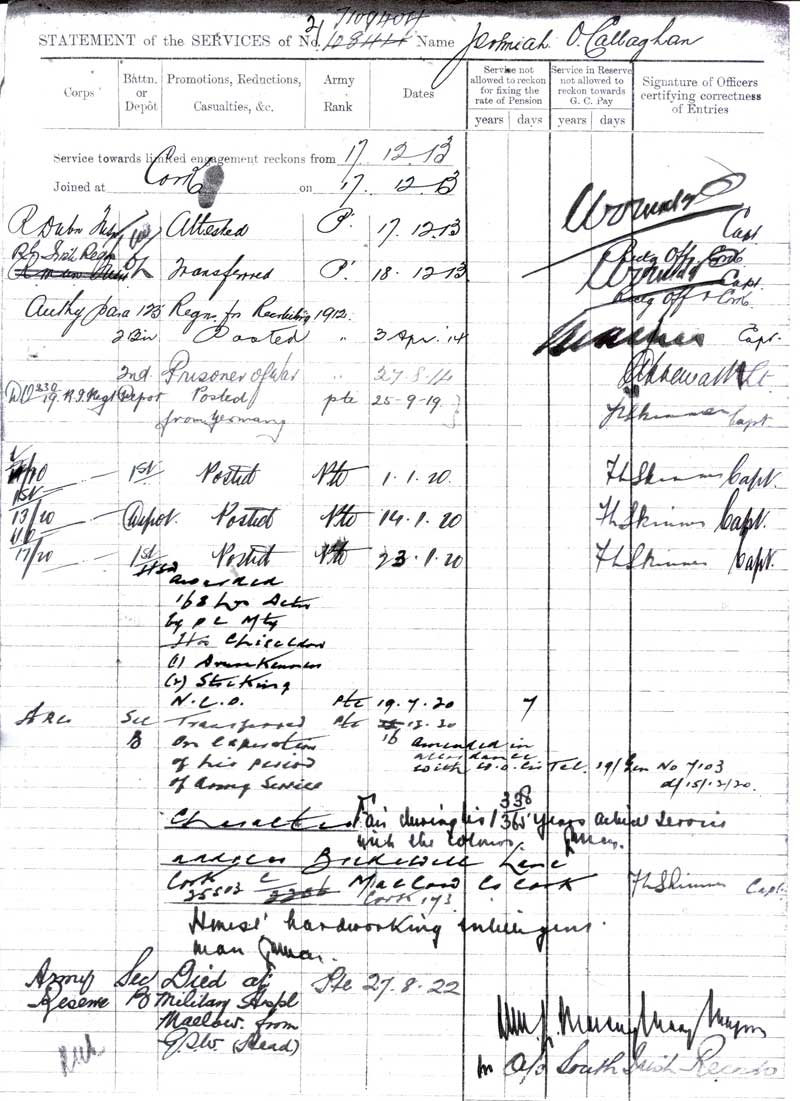 7109404
STATEMENT of the SERVICES of No. 10844 Name Jeremiah O'Callaghan
Corps
Battn. or Depôt
Promotions, Reductions, Casualties, &c.
Army Rank
Dates
Service not allowed to reckon for fixing the rate of Pension
years days
Service in Reserve not allowed to reckon towards G. C. Pay
years days
Signature of Officers certifying correctness of Entries
Service towards limited engagement reckons from 17. 12. 13
Joined at Cork on 17. 12. 13
R Dub Attested P. 17. 12. 13 Capt
Rectg Offr Cork
Rl Irish Regn Transferred P. 18. 12. 13 Capt.
Rectg Offr Cork
Authy para 125 Regns. for Recruiting 1912.
2 Bn Posted " 3 Apr. 14 Capt.
2nd. Prisoner of War " 27-8-14 Lt.
Depot Posted pte 25-9-19.
from Germany Skinner Capt
1st Posted Pte 1. 1. 20. Skinner Capt.
13/20 Depot. Posted Pte 14. 1. 20 Skinner Capt.
17/20 1st Posted Pte 23. 1. 20 Skinner Capt.
awarded
168 hrs Detn
by
Chiseldon
(1) Drunkenness
(2) Striking
N.C.O. Pte 19. 7. 20 7
Sec Transferred Pte 16 12. 20
B On Expiration amended in
of his period accordance
of Army Service with W.O. Tel. 19/Gen No 7103
d/15/12/20.
Character Fair during his 1 338/365 years actual service
with the colours.
address Bridewell Lane
Mallow Co Cork Skinner Capt.
Honest hardworking intelligent
man
Army Sec Died at Pte 27. 8. 22
Reserve B Military Hospl
Mallow. from
G.S.W. (Head)
South Irish Records